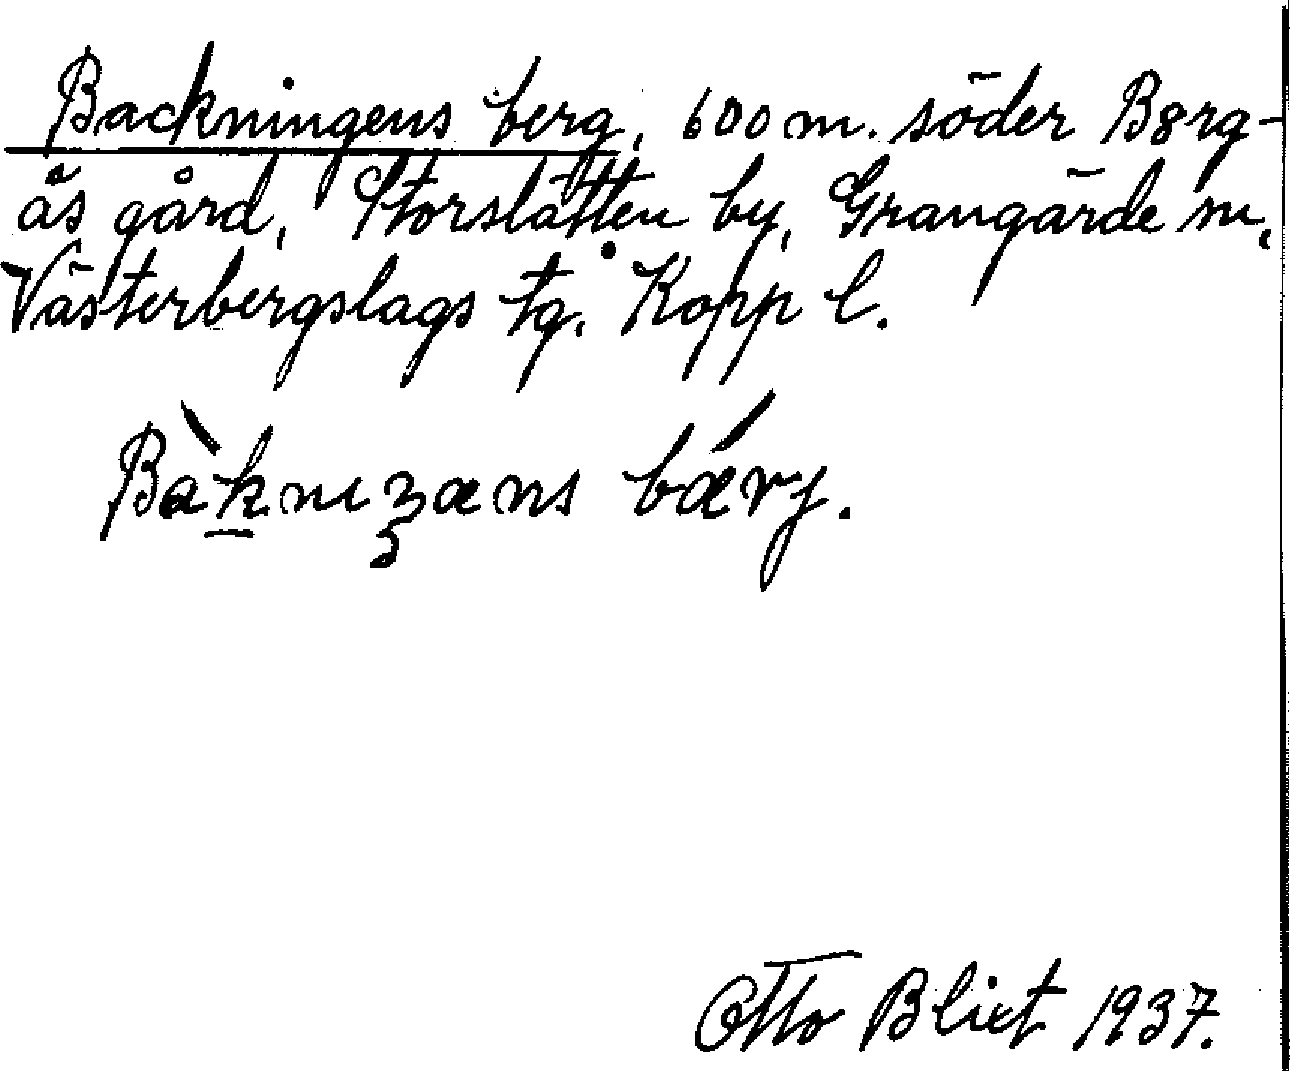 Backningens berg, 600 m. söder Berg-
ås gård, Storslätten by, Grangärde sn,
Västerbergslags tg. Kopp l.
berj.
Otto Blixt 1937.